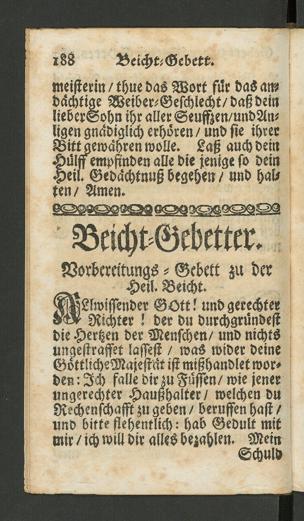 188 Beicht-Gebett.
meisterin / thue das Wort für das an-
dächtige Weiber-Geschlecht / daß dein
lieber Sohn ihr aller Seufftzen / und An-
ligen gnädiglich erhören / und sie ihrer
Bitt gewähren wolle. Laß auch dein
Hülff empfinden alle die jenige so dein
Heil. Gedächtnuß begehen / und hal-
ten / Amen.
Beicht-Gebetter.
Vorbereitungs-Gebett zu der
Heil. Beicht.
ALlwissender GOtt! und gerechter
Richter! der du durchgründest
die Hertzen der Menschen / und nichts
ungestraffet lassest / was wider deine
Göttliche Majestät ist mißhandlet wor-
den: Ich falle dir zu Füssen / wie jener
ungerechter Haußhalter / welchen du
Rechenschafft zu geben / beruffen hast /
und bitte flehentlich: hab Gedult mit
mir / ich will dir alles bezahlen. Mein
Schuld